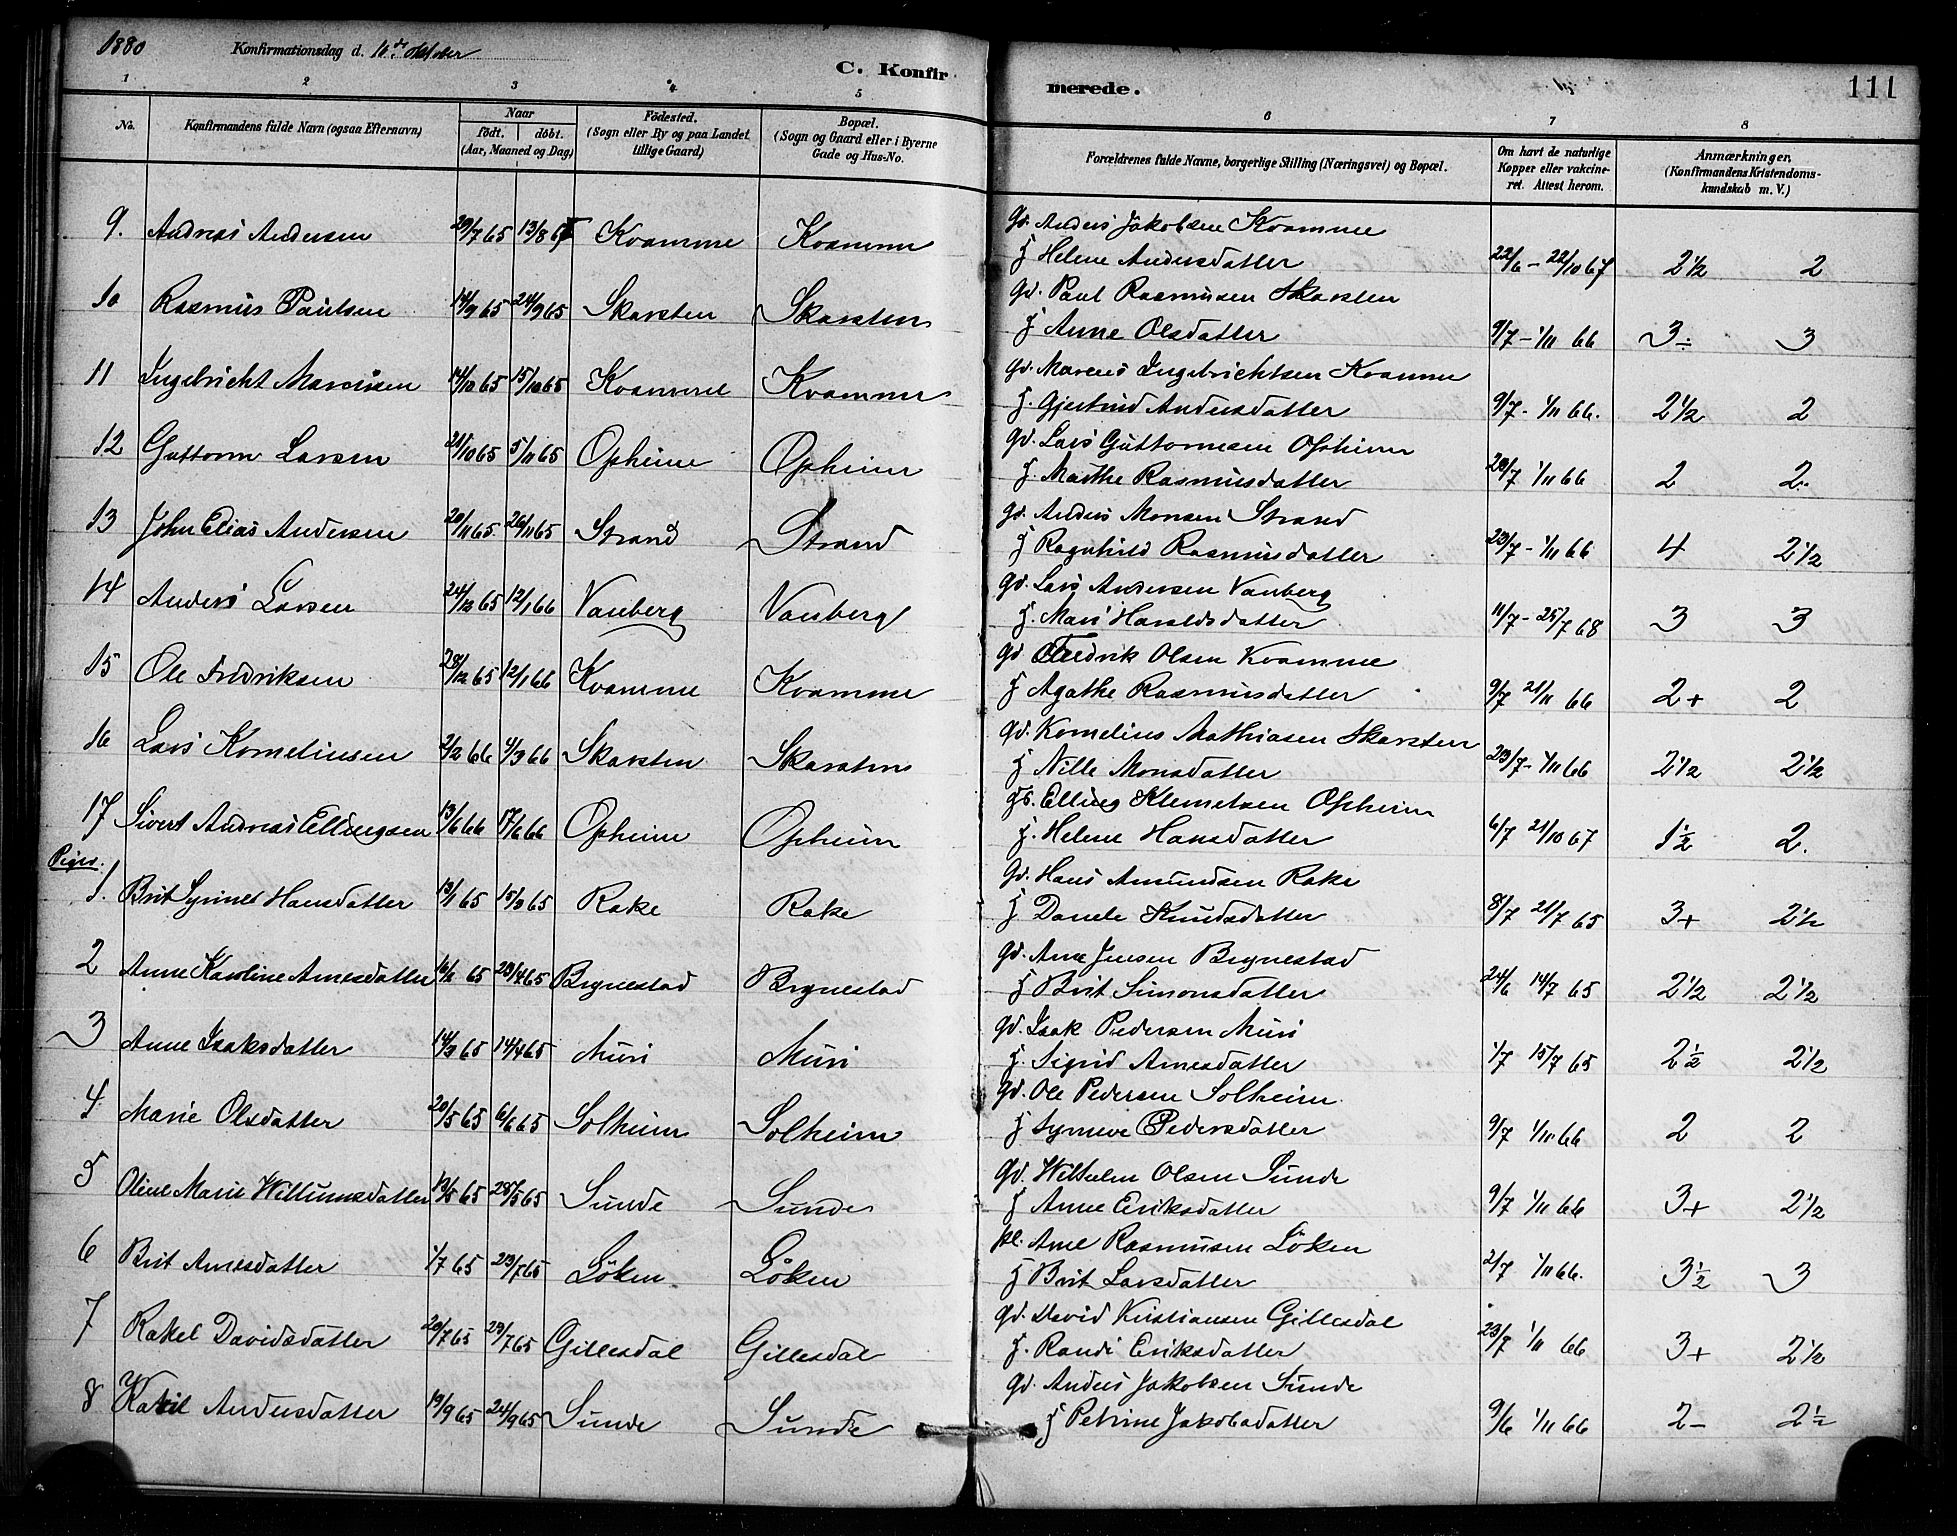 1880 Konfirmationsdag d. 10de oktober
C. Konfirmerede. 111
1 2 3 4 5 6 7 8
No. Konfirmandens fulde Navn (ogsaa Efternavn) Naar født. døbt. (Aar, Maaned og Dag) Fødested. (Sogn eller By og paa Landet tillige Gaard) Bopæl. (Sogn og Gaard eller i Byerne Gade og Hus-No. Forældrenes fulde Navne, borgerlige Stilling (Næringsvei) og Bopæl. Om havt de naturlige Kopper eller vakcineret. Attest herom. Anmærkninger. (Konfirmandens Kristendomskundskab m. V.)
9. Andreas Andersen 29/7 65 13/8 65 Kvamme Kvamme Gd. Anders Jakobsen Kvamme
H Helene Andersdatter 22/6 - 22/10 67 2 1/2 2
10 Rasmus Paulsen 14/9 65 24/9 65 Skarsten Skarsten Gd. Paul Rasmusen Skarsten
H Anne Olsdatter 9/7 - 1/11 66 3÷ 3
11 Ingebricht Marcusen 14/10 65 15/10 65 Kvamme Kvamme Gd. Marcus Ingebrichtsen Kvamme
H. Gjertrud Andersdatter 9/7 - 1/11 66. 2 1/2 2
12 Guttorm Larsen 21/10 65 5/11 65 Opheim Opheim Gd. Lars Guttormsen Opheim
H. Marthe Rasmusdatter 20/7 1/11 66 2 2.
13 John Elias Andersen 20/11 65. 26/11 65 Strand Strand Gd. Anders Monsen Strand
H Ragnhild Rasmusdatter 23/7 - 1/11 66 4 2 1/2
14 Anders Larsen 24/12 65 12/1 66 Vanberg Vanberg Gd. Lars Andersen Vanberg
H. Mari Haraldsdatter 11/7 - 25/7 68 3 3
15 Ole Fredriksen 28/12 65 12/1 66 Kvamme Kvamme Gd Fredrik Olsen Kvamme
H Agathe Rasmusdatter 9/7 21/11 66 2+ 2
16 Lars Kornelinsen 2/2 66 4/3 66 Skarsten Skarsten Gd. Kornelius Mathiasen Skarsten
H Nille Monsdatter 23/7 - 1/11 66 2 1/2 2 1/2
17 Sivert Andreas Ellingsen 13/6 66 17/6 66 Opheim Opheim Gd. Elling Klemetsen Opheim
H. Helene Hansdatter 6/7 21/10 67 1 1/2 2.
Piger.
1. Brit Synnes Hansdatter 13/1 65 15/3 65 Rake Rake Gd. Hans Amundsen Rake
H Danele Knudsdatter 8/7 21/7 65 3+ 2 1/2
2 Anne Karoline Arnesdatter 16/1 65 23/4 65 Brynestad Brynestad Gd. Arne Jensen Brynestad
H Brit Simonsdatter 24/6 14/7 65 2 1/2 2 1/2
3 Anne Isaksdatter 14/3 65 14/4 65 Muri Muri Gd. Isak Pedersen Muri
H. Sigrid Arnesdatter 1/7 15/7 65 2 1/2 2 1/2
4 Marie Olsdatter 20/5 65 6/6 65 Solheim Solheim Gd. Ole Pedersen Solheim.
H Synneve Pedersdatter 9/7 1/11 66 2 2
5 Oline Marie Willumsdatter 19/5 65 28/5 65 Sunde Sunde Gd. Wilhelm Olsen Sunde
H Anne Eriksdatter 9/7 1/11 66 3+ 2 1/2
6 Brit Arnesdatter 1/7 65 23/7 65 Löken Löken pl. Arne Rasmusen Löken
H Brit Larsdatter 2/7 1/11 66. 3 1/2 3
7 Rakel Davidsdatter 20/7 65 29/7 65 Gillesdal Gillesdal Gd. David Kristiansen Gillesdal
H. Randi Eriksdatter 23/7 1/11 66 3+ 2 1/2
8 Andersdatter 19/9 65 24/9 65 Sunde Sunde Gd. Anders Jakobsen Sunde
H Petrine Jakobsdatter 9/6 1/11 66 2- 2 1/2